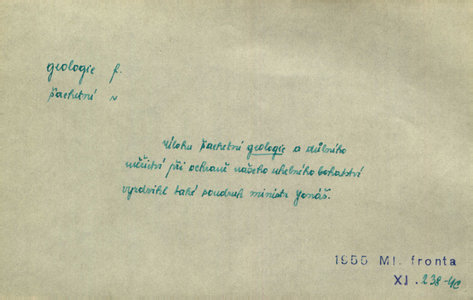 geologie f.
šachetní
úlohu šachetní geologie a důlního
měřictví při ochraně našeho uhelného bohatství
vyzdvihl také soudruh ministr Jonáš.
1955 Ml. fronta
XI. 238-4c